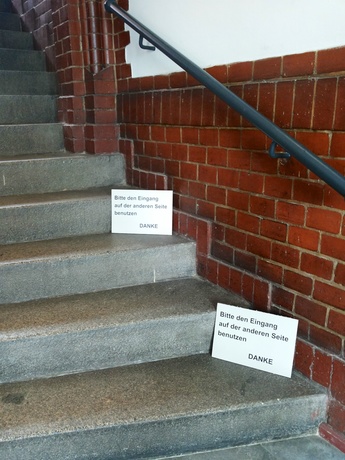 Bitte den Eingang
auf der anderen Seite
benutzen
DANKE
Bitte den Eingang
auf der anderen Seite
benutzen
DANKE